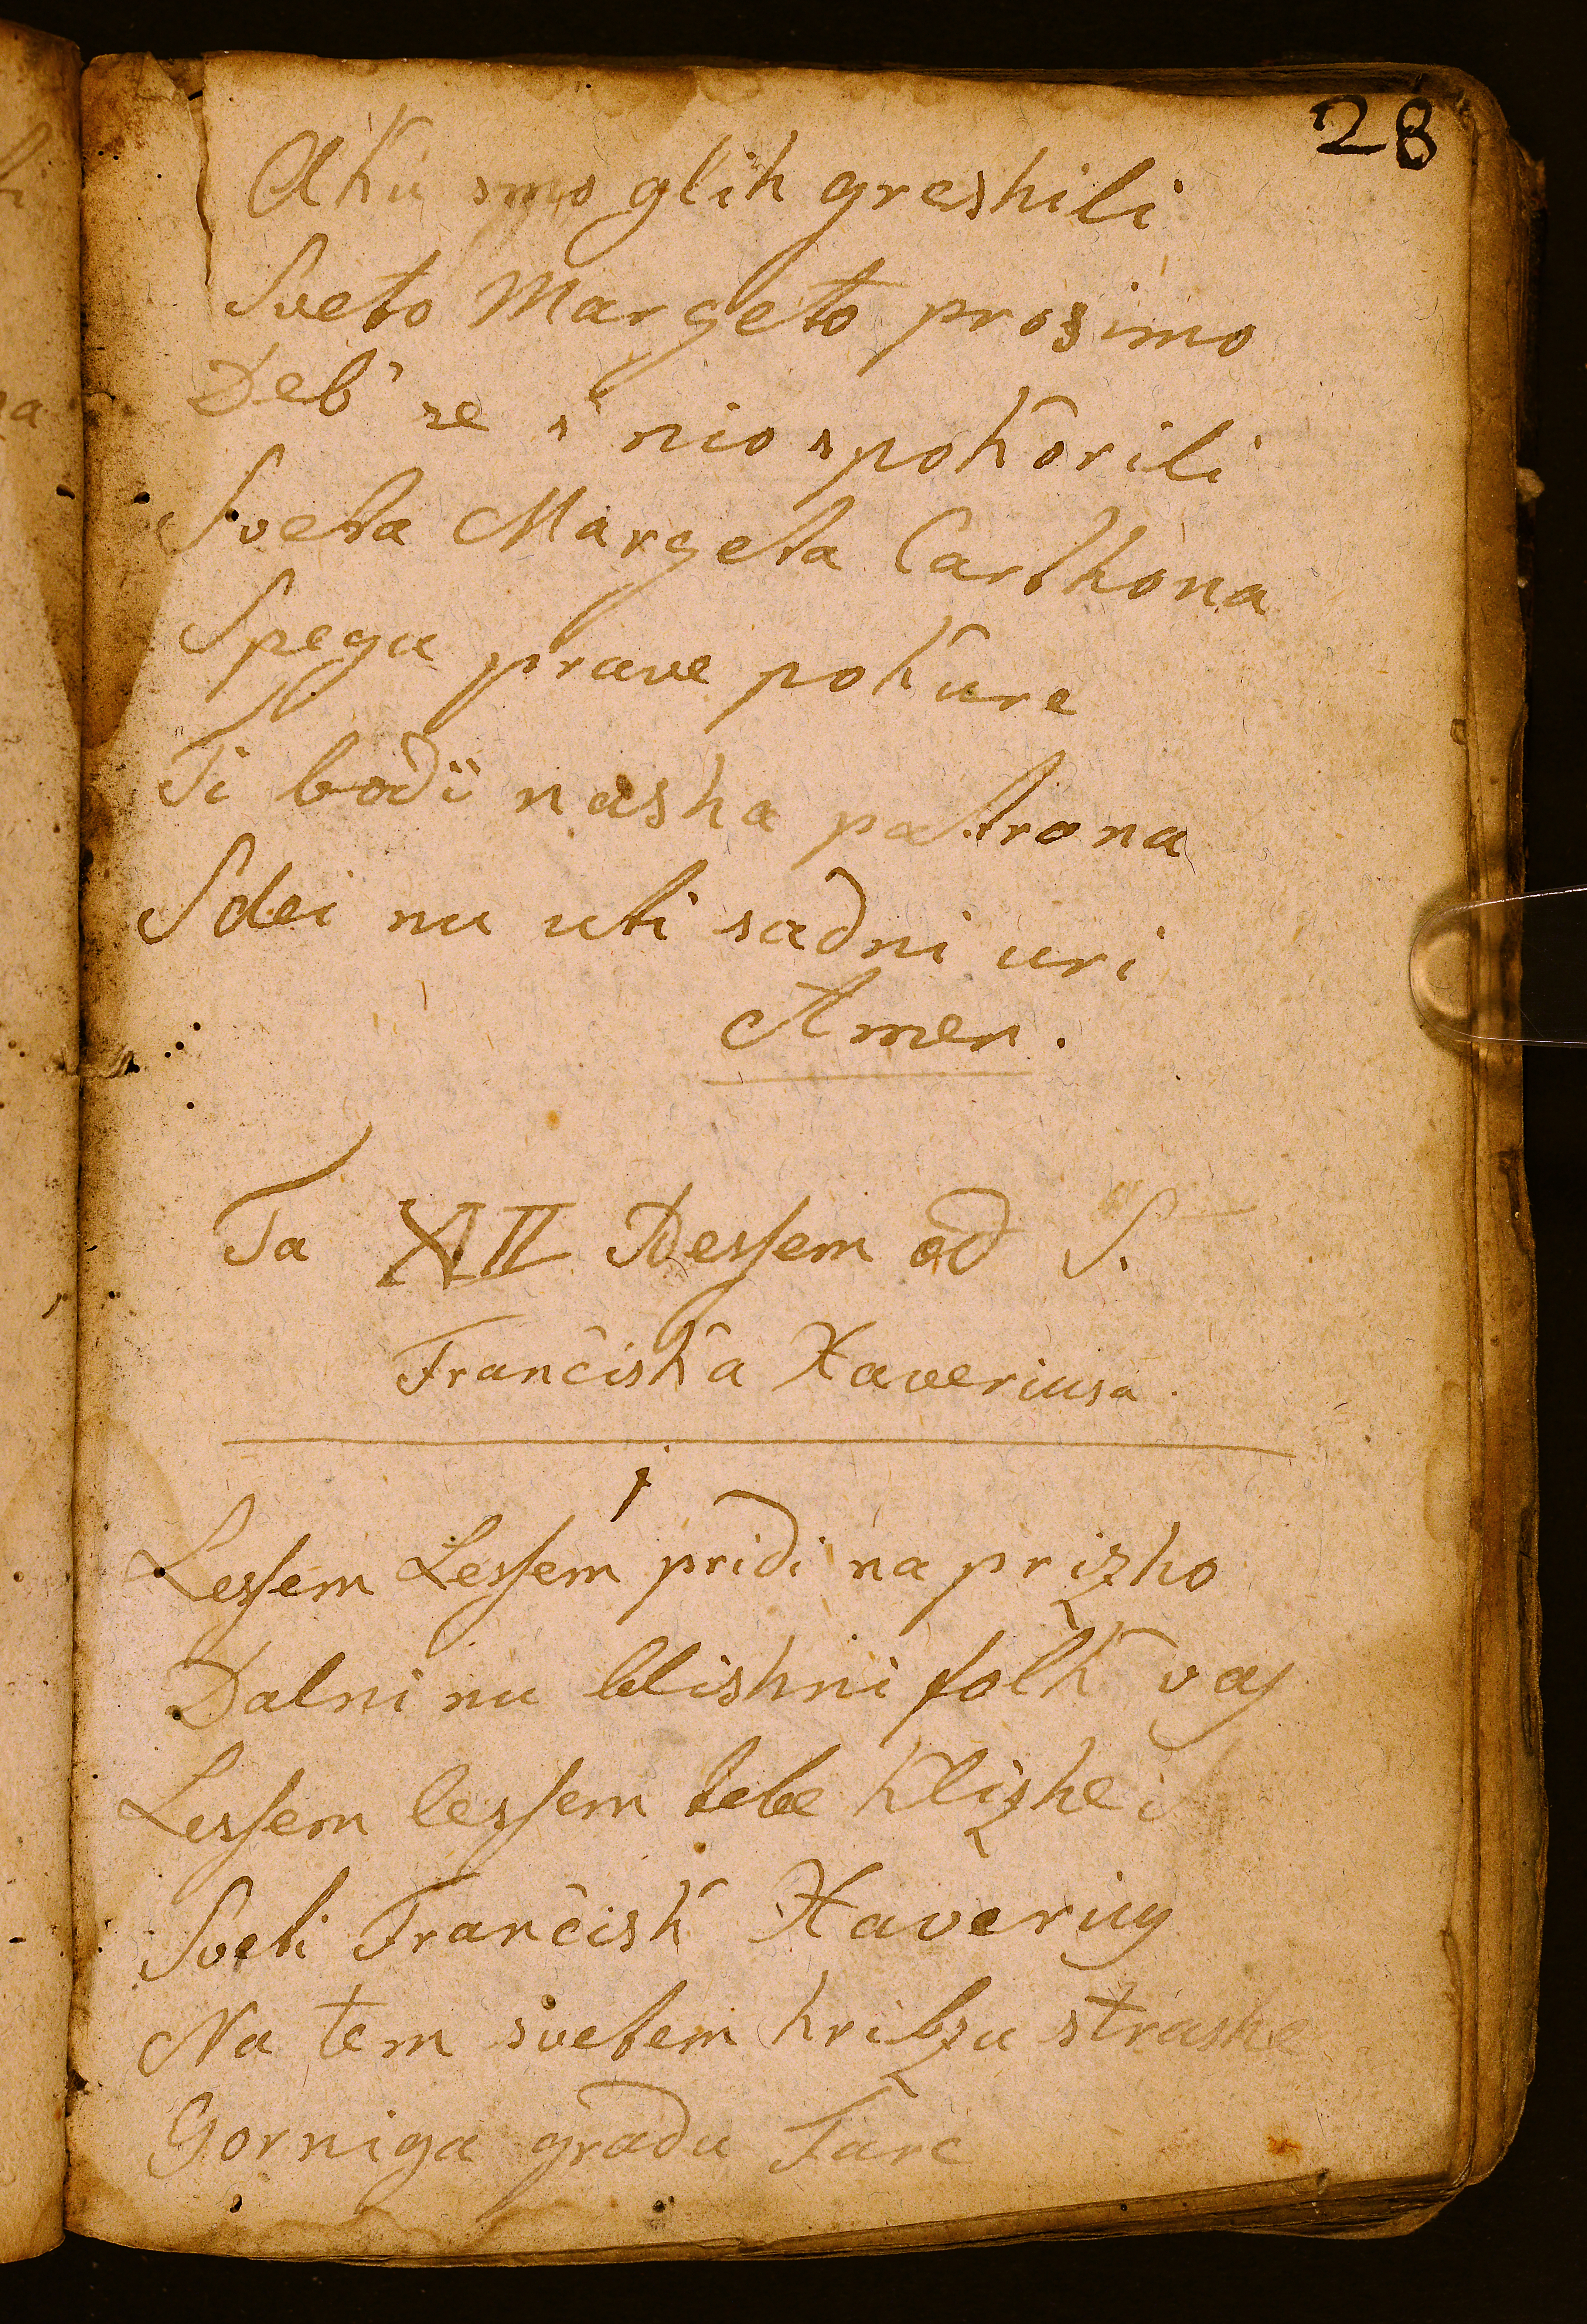 28
Aku smo glih greshili
Sveto Margeto prosimo
Deb' se s' nio spokorili
Sveta Margeta Carthona
Spegu prave pokure
Ti bodi nasha patrona
Sdei nu uti sadni uri
Amen.
Ta XII Pessem od S.
Franciska Xaveriusa.
1
Lessem Lessem pridi na prizho
Dalni nu blishni folk vas
Lessem lessem tebe klizhe
Sveti Francisk Xaverius
Na tem svetem hribzu strashe
Gorniga gradu Fare